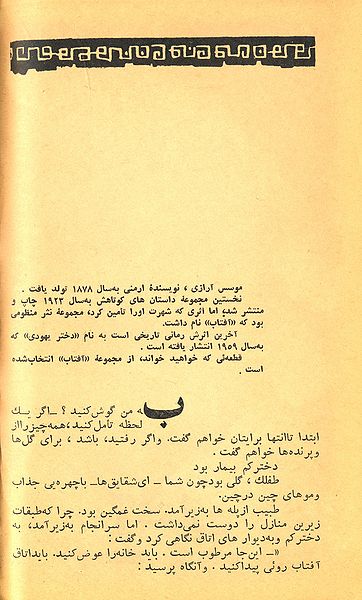 موسس آرازی ، نویسندهٔ ارمنی به‌سال ۱۸۷۸ تولد یافت .
نخستین مجموعهٔ داستان های کوتاهش به‌سال ۱۹۲۳ چاپ و
منتشر شد، اما اثری که شهرت اورا تأمین کرد، مجموعهٔ نثر منظومی
بود که «آفتاب» نام داشت.
آخرین اثرش رمانی تاریخی است به نام «دختر یهودی» که
به‌سال ۱۹۵۹ انتشار یافته است .
قطعه‌ئی که خواهید خواند، از مجموعهٔ «آفتاب» انتخاب‌شده
است .
به من گوش کنید ؟ ــ اگر یك
لحظه تأمل کنید، همه‌چیز رااز
ابتدا تاانتها برایتان خواهم گفت. واگر رفتید، باشد ، برای گل‌ها
وپرنده‌ها خواهم گفت .
دخترکم بیمار بود
طفلك ، گلی بودچون شما ــ ای‌شقایق‌ها ــ باچهره‌یی جذاب
وموهای چین درچین.
طبیب ازپله ها به‌زیرآمد. سخت غمگین بود. چرا که‌طبقات
زیرین منازل را دوست نمی‌داشت . اما سرانجام به‌زیرآمد، به
دخترکم وبه‌دیوار های اتاق نگاهی کرد وگفت :
«ــ این‌جا مرطوب است . باید خانه‌را عوض‌کنید. بایداتاق
آفتاب روئی پیداکنید . وآنگاه پرسید :